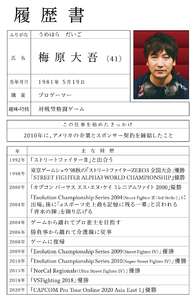 履歴書
ふりがな うめはら だいご
氏名 梅原大吾(41)
生年月日 1981年5月19日
職業 プロゲーマー
趣味・特技 対戦型格闘ゲーム
この仕事を始めたきっかけ
2010年に、アメリカの企業とスポンサー契約を締結したこと
年 主な経歴
1992年 「ストリートファイターⅡ」と出合う
1998年 東京ゲームショウ'98秋の「ストリートファイターZERO3 全国大会」優勝
「STREET FIGHTER ALPHA3 WORLD CHAMPIONSHIP」優勝
2000年 「カプコン バーサス エス・エヌ・ケイ ミレニアムファイト 2000」優勝
2004年 「Evolution Championship Series 2004
「背水の逆転劇」を繰り広げる
2004年 ゲームから離れて
2008年 ゲームに復帰
2009年 「Evolution Championship Series 2009(Street Fighter Ⅳ)」優勝
2010年 「Evolution Championship Series 2010(Super Street Fighter Ⅳ)」優勝
2015年 「NorCal Regionals(Ultra Street Fighter Ⅳ)」優勝
2018年 「VSFighting 2018」優勝
2020年 「CAPCOM Pro Tour Online 2020 Asia East 1」優勝